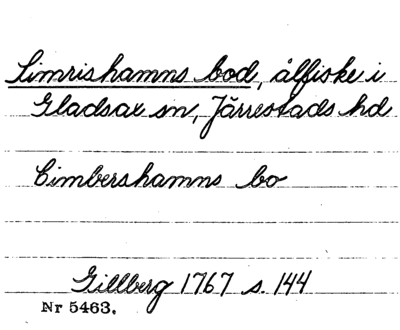 Simrishamns bod, ålfiske i
Gladsax sn, Järrestads hd
Cimbershamns bo
Gillberg 1767 s. 144
Nr 5463.